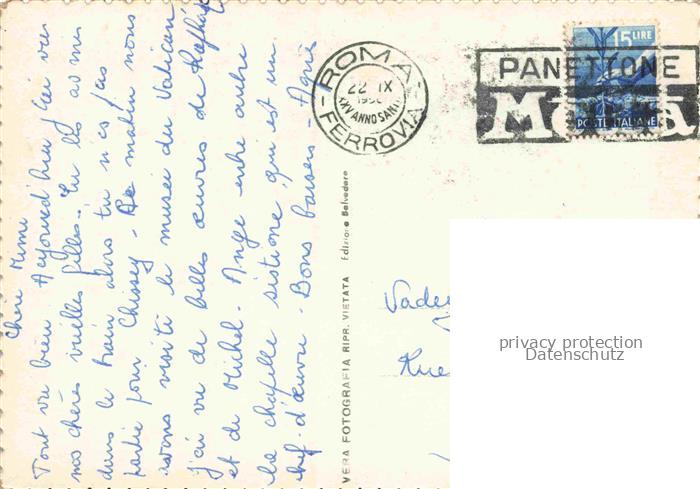 Chère Mimi
Tout va bien Aujourd'hui j'ai vu
mes chères vieilles filles. Tu les as mis
dans le train alors tu n'es pas
partie pour Chissey - Ce matin nous
avons visité le musée du Vatican
j'ai vu de belles œuvres de Raphaël
et de Michel-Ange entre autre
la chapelle sistione qui est un
chef-d'œuvre - Bons baisers -
VERA FOTOGRAFIA RIPR. VIETATA Edizione Belvedere
ROMA
FERROVIA
22 IX
XXV ANNO SANTO
PANETTONE
15 LIRE
POSTE ITALIANE
Rue
privacy protection
Datenschutz